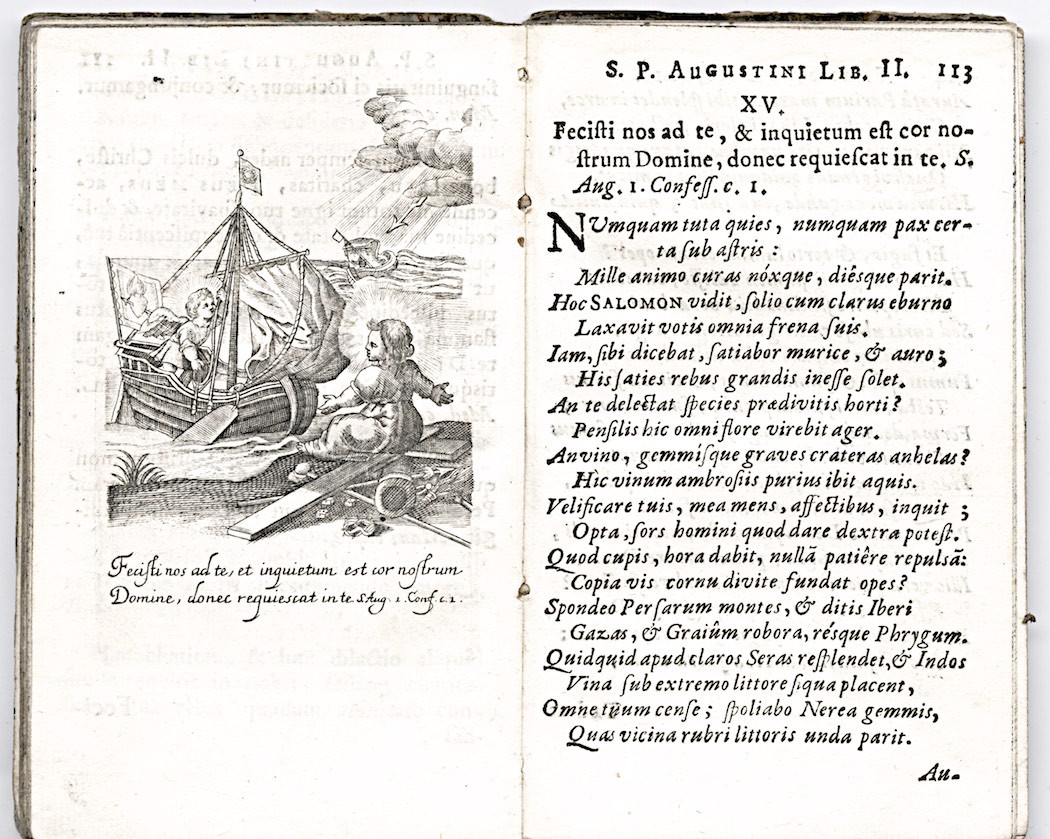 Fecisti nos ad te, et inquietum est cor nostrum
Domine, donec requiescat in te. S Aug. 1. Conf. c. 1.
S. P. AUGUSTINI LIB. II. 113
XV.
Feciſti nos ad te, & inquietum eſt cor no-
ſtrum Domine, donec requieſcat in te. S.
Aug. 1. Confeſſ. c. 1.
NUmquam tuta quies, numquam pax cer-
ta ſub aſtris:
Mille animo curas nóxque, diéſque parit.
Hoc SALOMON vidit, ſolio cum clarus eburno
Laxavit votis omnia frena ſuis.
Iam, ſibi dicebat, ſatiabor murice, & auro;
His ſaties rebus grandis ineſſe ſolet.
An te delectat ſpecies prædivitis horti?
Penſilis hic omni flore virebit ager.
An vino, gemmiſque graves crateras anhelas?
Hìc vinum ambroſiis purius ibit aquis.
Velificare tuis, mea mens, affectibus, inquit;
Opta, ſors homini quod dare dextra poteſt.
Quod cupis, hora dabit, nullã patiêre repulsã:
Copia vis cornu divite fundat opes?
Spondeo Perſarum montes, & ditis Iberi
Gazas, & Graiûm robora, réſque Phrygum.
Quidquid apud claros Seras reſplendet, & Indos
Vina ſub extremo littore ſiqua placent,
Omne tuum cenſe; ſpoliabo Nerea gemmis,
Quas vicina rubri littoris unda parit.
Au-